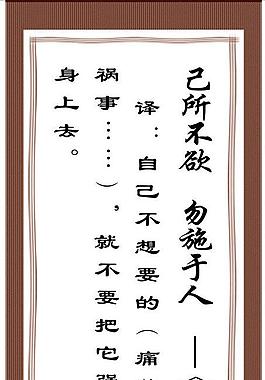 己所不欲 勿施于人 ——《
译：自己不想要的（痛
祸事……），就不要把它强
身上去。